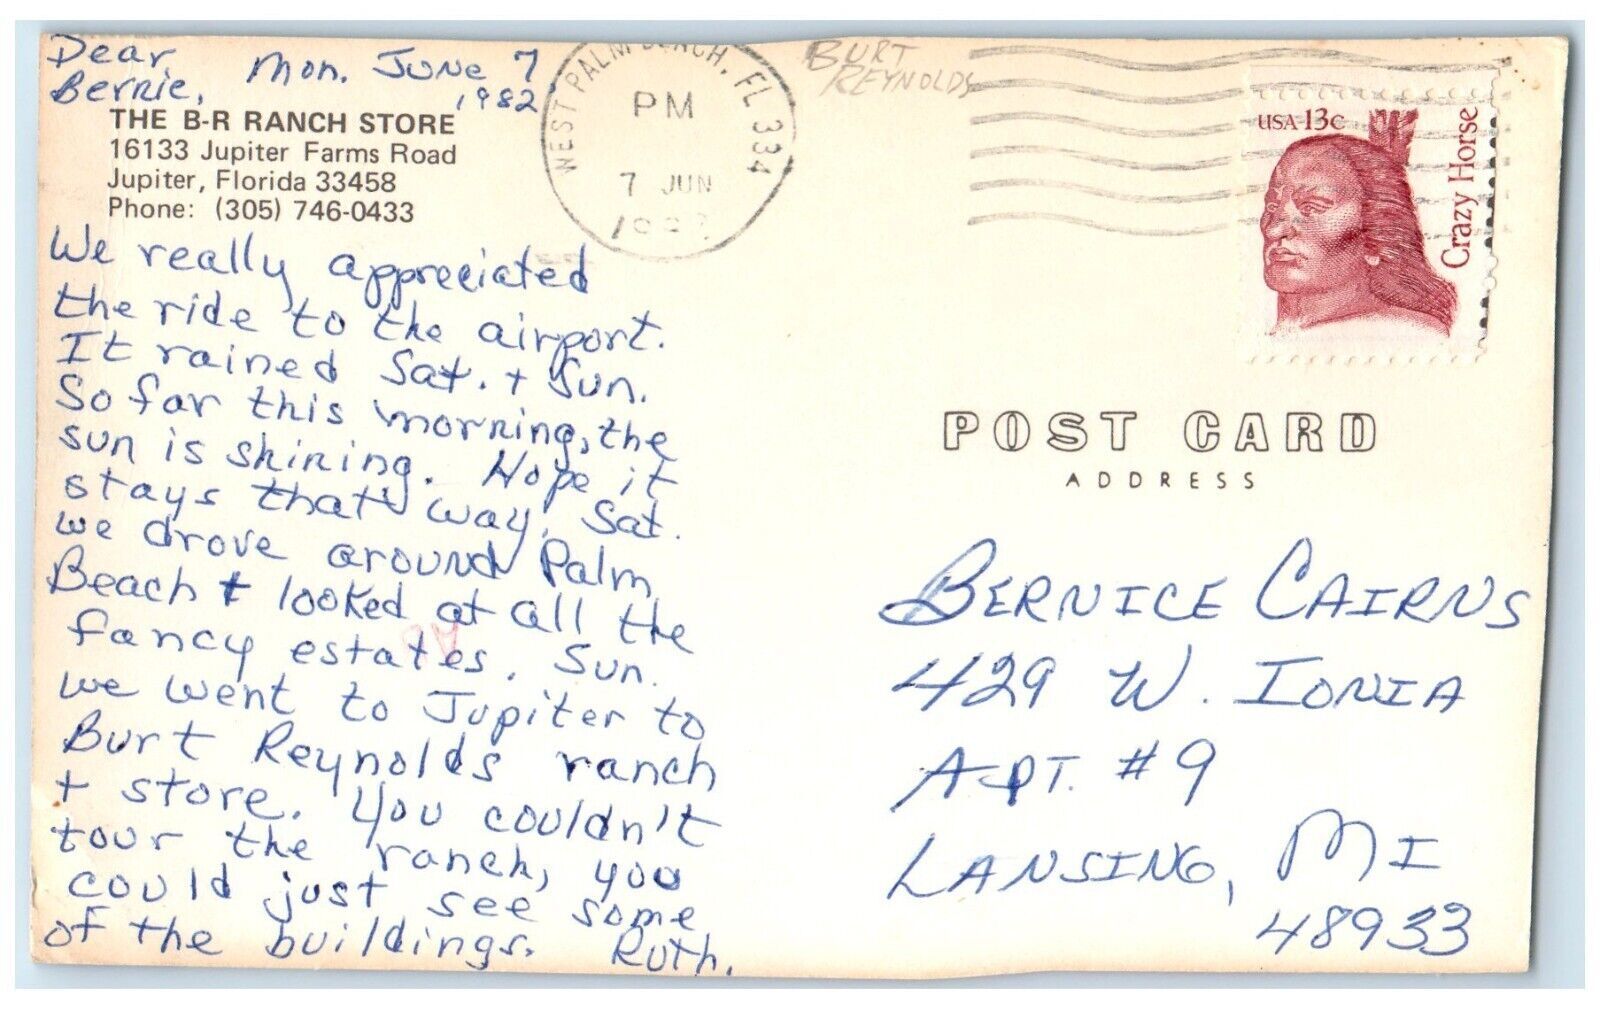 Dear
Bernie, Mon. June 7
1982
THE B-R RANCH STORE
16133 Jupiter Farms Road
Jupiter, Florida 33458
Phone: (305) 746-0433
We really appreciated
the ride to the airport.
It rained Sat. + Sun.
So far this morning, the
sun is shining. Hope it
stays that way. Sat.
we drove around Palm
Beach + looked at all the
fancy estates. Sun.
we went to Jupiter to
Burt Reynolds ranch
+ store. You couldn't
tour the ranch, you
could just see some
of the buildings. Ruth.
WEST PALM BEACH, FL 334
PM
7 JUN
BURT
REYNOLDS
USA 13c
Crazy Horse
POST CARD
ADDRESS
BERNICE CAIRNS
429 W. IONIA
APT. #9
LANSING, MI
48933